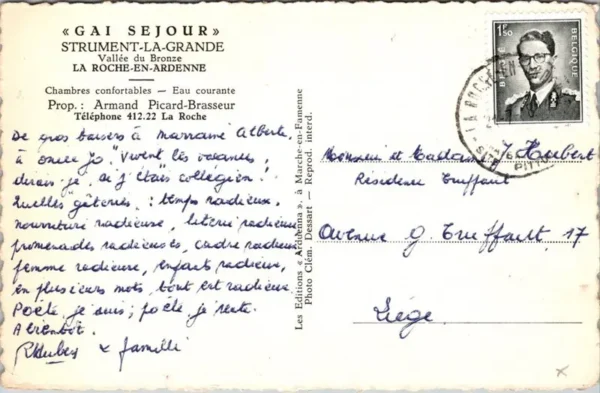 « GAI SEJOUR »
STRUMENT-LA-GRANDE
Vallée du Bronze
LA ROCHE-EN-ARDENNE
Chambres confortables — Eau courante
Prop.: Armand Picard-Brasseur
Téléphone 412.22 La Roche
De gros baisers à marraine Alberte,
à oncle Jo. "Vivent les vacances,
dirais-je, si j'étais collégien!
Quelles gâteries: temps radieux,
nourriture radieuse, literie radieuse
promenades radieuses, cadre radieux
femme radieuse, enfants radieux,
en plusieurs mots, tout est radieux.
Poète je suis; poète je reste.
A bientôt.
RHubert & famille
Les Editions « Ardenna », à Marche-en-Famenne
Photo Clém. Dessart - Reprod. interd.
1F50
BELGIQUE
LA ROCHE
Monsieur et Madame Hubert
Résidence Truffaut
Avenue G. Truffault, 17
Liège
x